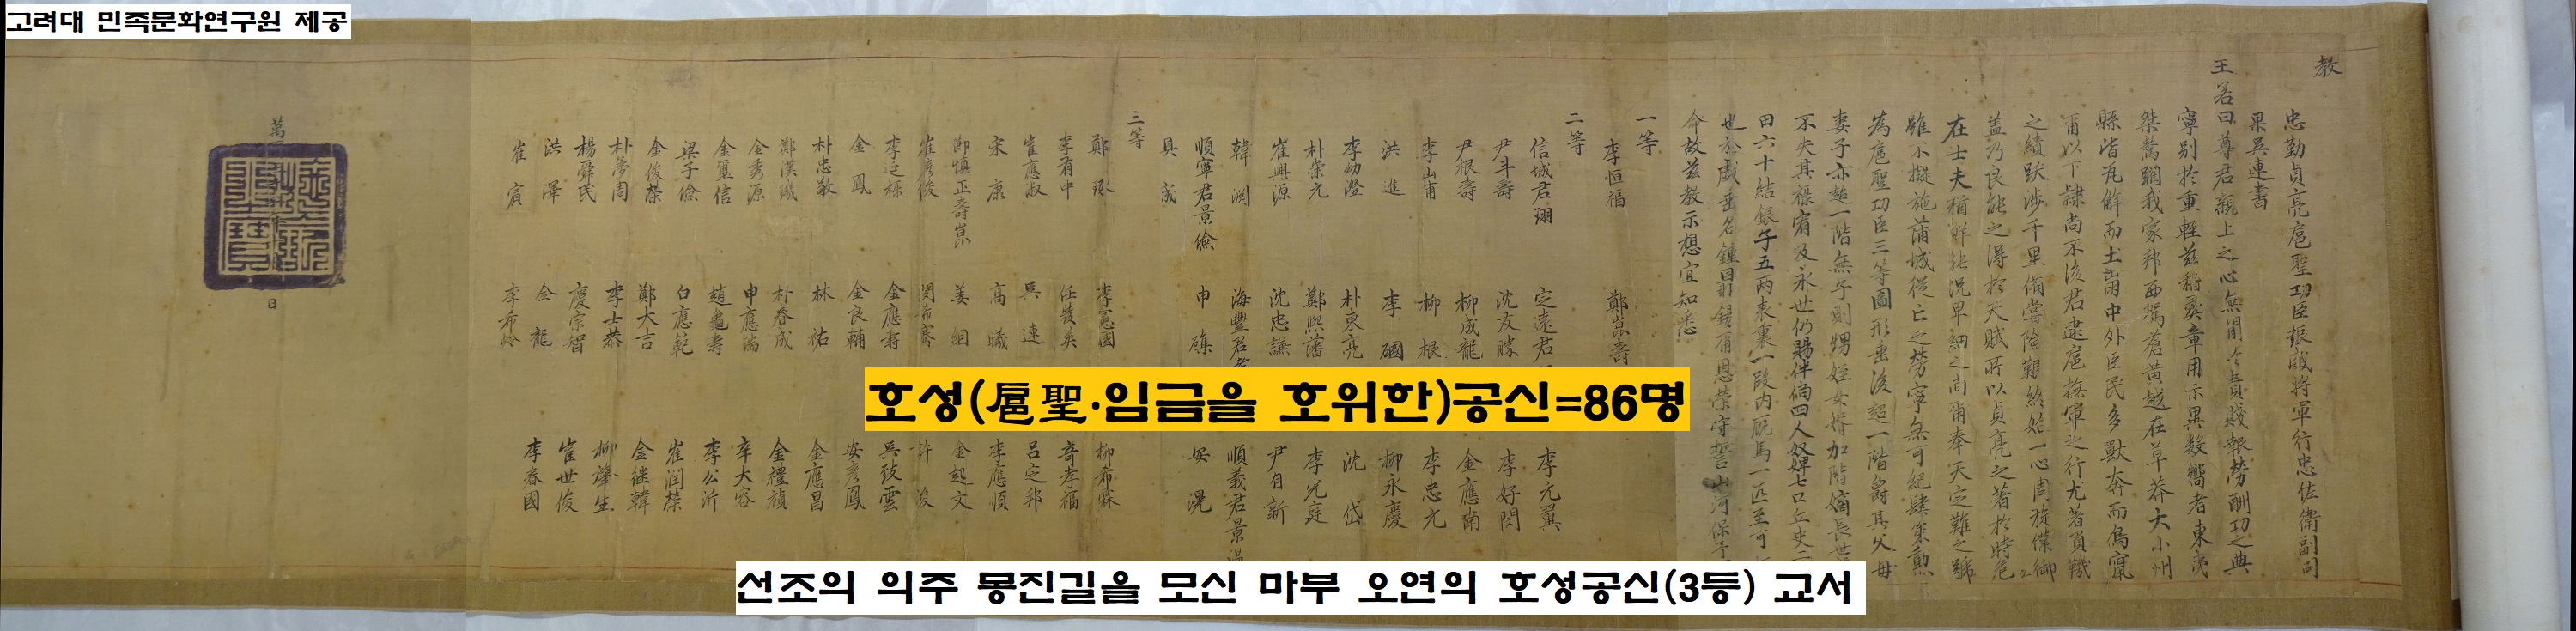 고려대 민족문화연구원 제공
教
忠勤貞亮扈聖功臣振威將軍行忠佐衛副司
果吳連書
王若曰尊君親上之心無間於貴賤報勞酬功之典
寧別於重輕玆稽彝章用示異數嚮者東夷
桀驁躙我家邦西爲蒼黃越在草莽大小州
縣皆瓦解而土崩中外臣民多獸奔而鳥竄
甭以下隷尚不後君逮扈撫軍之行尤著負羈
之績跋涉千里備嘗險艱終始一心周旋僕御
盖乃良能之得於天賦所以貞亮之著於時危
在士夫猶鮮能況卑細之尚甭奉天定難之號
雖不擬施蒲城從亡之勞寧無可紀肆策勳
為扈聖功臣三等圖形垂後超一階爵其父母
妻子亦超一階無子則甥姪女壻加階嫡長世
不失其祿宥及永世仍賜伴倘四人奴婢七口丘史二
田六十結銀子五兩表裏一段內廐馬一匹至可
也於戱垂名鍾鼎鏡甭恩榮守誓山河保予
命故玆敎示想宜知悉
一等
李恒福 鄭崑壽
二等
信城君珝 定遠君 李元翼
尹斗壽 沈友勝 李好閔
尹根壽 柳成龍 金應南
李山甫 柳根 李忠元
洪進 李𥕏 柳永慶
李幼澄 朴東亮 沈岱
朴崇元 鄭煕藩 李光庭
崔興源 沈忠謙 尹自新
韓淵 海豐君 順義君景溫
順寧君景儉 申磼 安滉
具宬
三等
鄭琢 李憲國 柳希霖
李有中 任發英 奇孝福
崔應淑 吳連 呂定邦
宋康 高曦 李應順
御愼正壽崑 姜絪 金起文
崔彦俊 閔希騫 許浚
李延祿 金應壽 吳致雲
金鳳 金良輔 安彦鳳
朴忠敬 林祐 金應昌
鄭漢璣 朴春成 金禮禎
金秀源 申應湍 辛大容
金璽信 趙龜壽 李公沂
梁子儉 白應範 崔潤榮
金俊榮 鄭大吉 金継韓
朴夢周 李士恭 柳肇生
楊舜民 慶宗智 崔世俊
洪澤 全龍 李春國
崔賓 李希齡
萬
日
호성(扈聖·임금을 호위한)공신=86명
선조의 의주 몽진길을 모신 마부 오연의 호성공신(3등) 교서